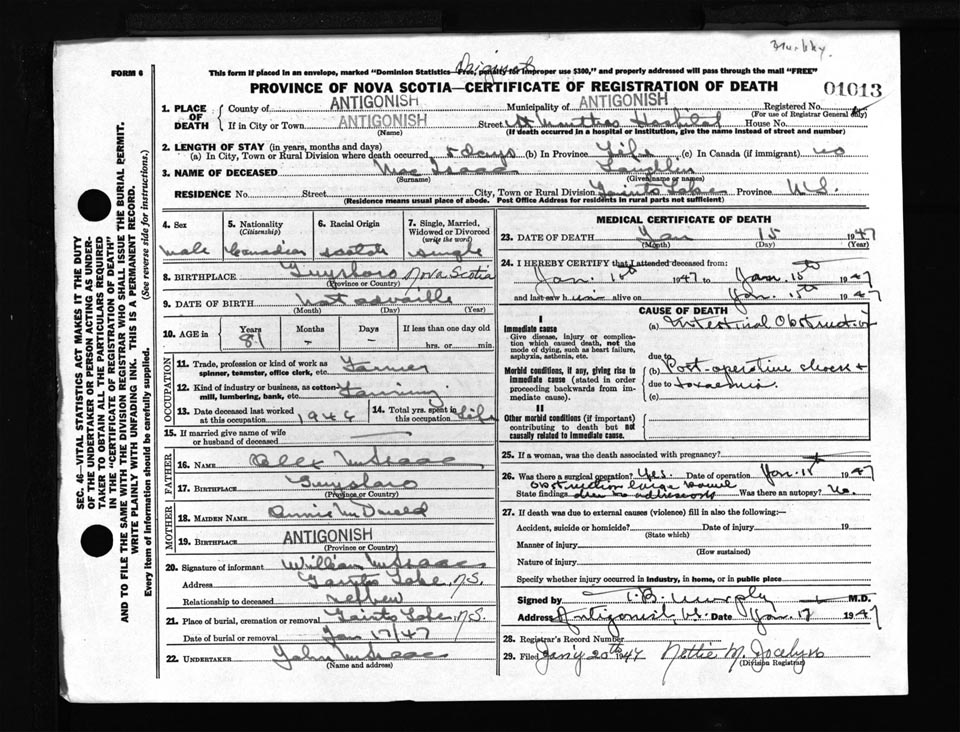 Murphy.
FORM 6
This form if placed in an envelope, marked "Dominion Statistics—Free, penalty for improper use $300," and properly addressed will pass through the mail "FREE"
PROVINCE OF NOVA SCOTIA—CERTIFICATE OF REGISTRATION OF DEATH
01013
1. PLACE OF DEATH
County of ANTIGONISH Municipality of ANTIGONISH Registered No.
(For use of Registrar General only)
If in City or Town ANTIGONISH Street St. Martha's Hospital House No.
(Name) (If death occurred in a hospital or institution, give the name instead of street and number)
2. LENGTH OF STAY (in years, months and days)
(a) In City, Town or Rural Division where death occurred days (b) In Province Life (c) In Canada (if immigrant) no
3. NAME OF DECEASED Mac Isaac
(Surname) (Given name or names)
RESIDENCE No. Street City, Town or Rural Division Lake Province N.S.
(Residence means usual place of abode. Post Office Address for residents in rural parts not sufficient)
4. Sex
male
5. Nationality (Citizenship)
Canadian
6. Racial Origin
Scotch
7. Single, Married, Widowed or Divorced (write the word)
single
8. BIRTHPLACE Guysboro Nova Scotia
(Province or Country)
9. DATE OF BIRTH
(Month) (Day) (Year)
10. AGE in Years Months Days If less than one day old
81 - - hrs. or min.
OCCUPATION
11. Trade, profession or kind of work as spinner, teamster, office clerk, etc. Farmer
12. Kind of industry or business, as cotton mill, lumbering, bank, etc. Farming
13. Date deceased last worked at this occupation 1946
14. Total yrs. spent in this occupation Life
15. If married give name of wife or husband of deceased
FATHER
16. NAME Alex McIsaac
17. BIRTHPLACE Guysboro
(Province or Country)
MOTHER
18. MAIDEN NAME Annie McDonald
19. BIRTHPLACE ANTIGONISH
(Province or Country)
20. Signature of informant William McIsaac
Address Lake, N.S.
Relationship to deceased nephew
21. Place of burial, cremation or removal Lake, N.S.
Date of burial or removal Jan 17/47
22. UNDERTAKER John McIsaac
(Name and address)
MEDICAL CERTIFICATE OF DEATH
23. DATE OF DEATH Jan 15 1947
(Month) (Day) (Year)
24. I HEREBY CERTIFY that I attended deceased from:
Jan. 1947 to Jan. 15th 1947
and last saw him alive on Jan. 15th 1947
CAUSE OF DEATH
I
Immediate cause
Give disease, injury or complication which caused death, not the mode of dying, such as heart failure, asphyxia, asthenia, etc.
(a) Intestinal Obstruction
due to
Morbid conditions, if any, giving rise to immediate cause (stated in order proceeding backwards from immediate cause).
(b) Post-operative shock +
due to toxaemia
(c)
II
Other morbid conditions (if important) contributing to death but not causally related to immediate cause.
25. If a woman, was the death associated with pregnancy?
26. Was there a surgical operation? Yes. Date of operation Jan. 1947
obstruction large bowel
State findings due to adhesions Was there an autopsy? No.
27. If death was due to external causes (violence) fill in also the following:—
Accident, suicide or homicide? Date of injury 19
(State which)
Manner of injury
(How sustained)
Nature of injury
Specify whether injury occurred in industry, in home, or in public place
Signed by Murphy M.D.
Address Antigonish, N.S. Date Jan. 17 1947
28. Registrar's Record Number
29. Filed Jan'y 20th 1947 Nettie M. Jocelyn
(Division Registrar)
SEC. 46—VITAL STATISTICS ACT MAKES IT THE DUTY OF THE UNDERTAKER OR PERSON ACTING AS UNDERTAKER TO OBTAIN ALL THE PARTICULARS REQUIRED IN THE "CERTIFICATE OF REGISTRATION OF DEATH" AND TO FILE THE SAME WITH THE DIVISION REGISTRAR WHO SHALL ISSUE THE BURIAL PERMIT.
WRITE PLAINLY WITH UNFADING INK. THIS IS A PERMANENT RECORD.
Every item of information should be carefully supplied. (See reverse side for instructions.)